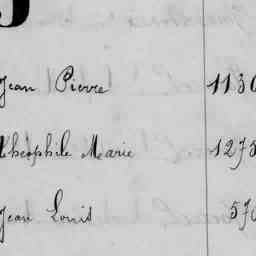 Jean Pierre 1130
Théophile Marie 1275
Jean Louis 570